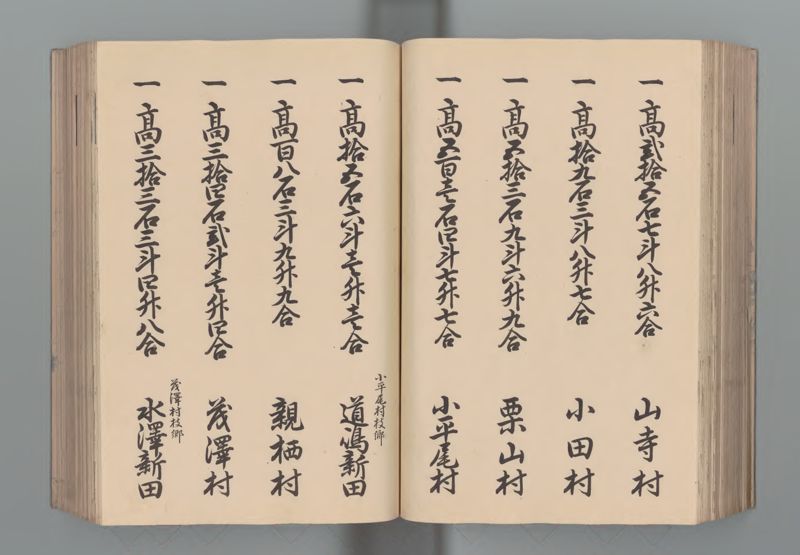 一 高弐拾五石七斗八升六合 山寺村
一 高拾九石三斗八升七合 小田村
一 高五拾三石九斗六升九合 栗山村
一 高五百壱石四斗七升七合 小平尾村
小平尾村枝郷
一 高拾五石六斗壱升壱合 道嶋新田
一 高百八石三斗九升九合 親栖村
一 高三拾四石弐斗壱升四合 茂澤村
茂澤村枝郷
一 高三拾三石三斗四升八合 水澤新田